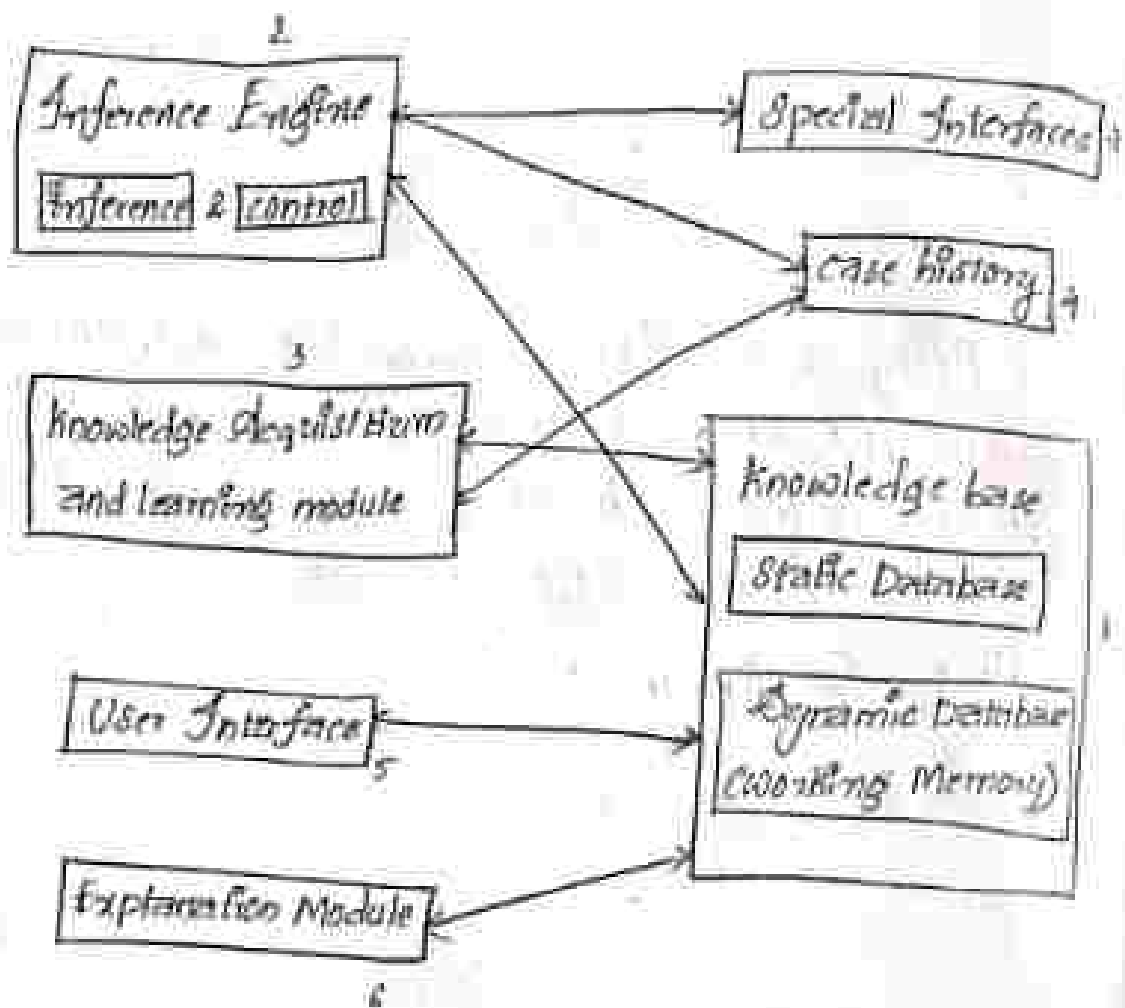 2
Inference Engine
Inference & control
Special Interfaces
case history
4
3
Knowledge Acquisitium
and learning module
Knowledge base
Static Database
1
Dynamic Databae
(working Memory)
User Interface
5
Explanation Module
6